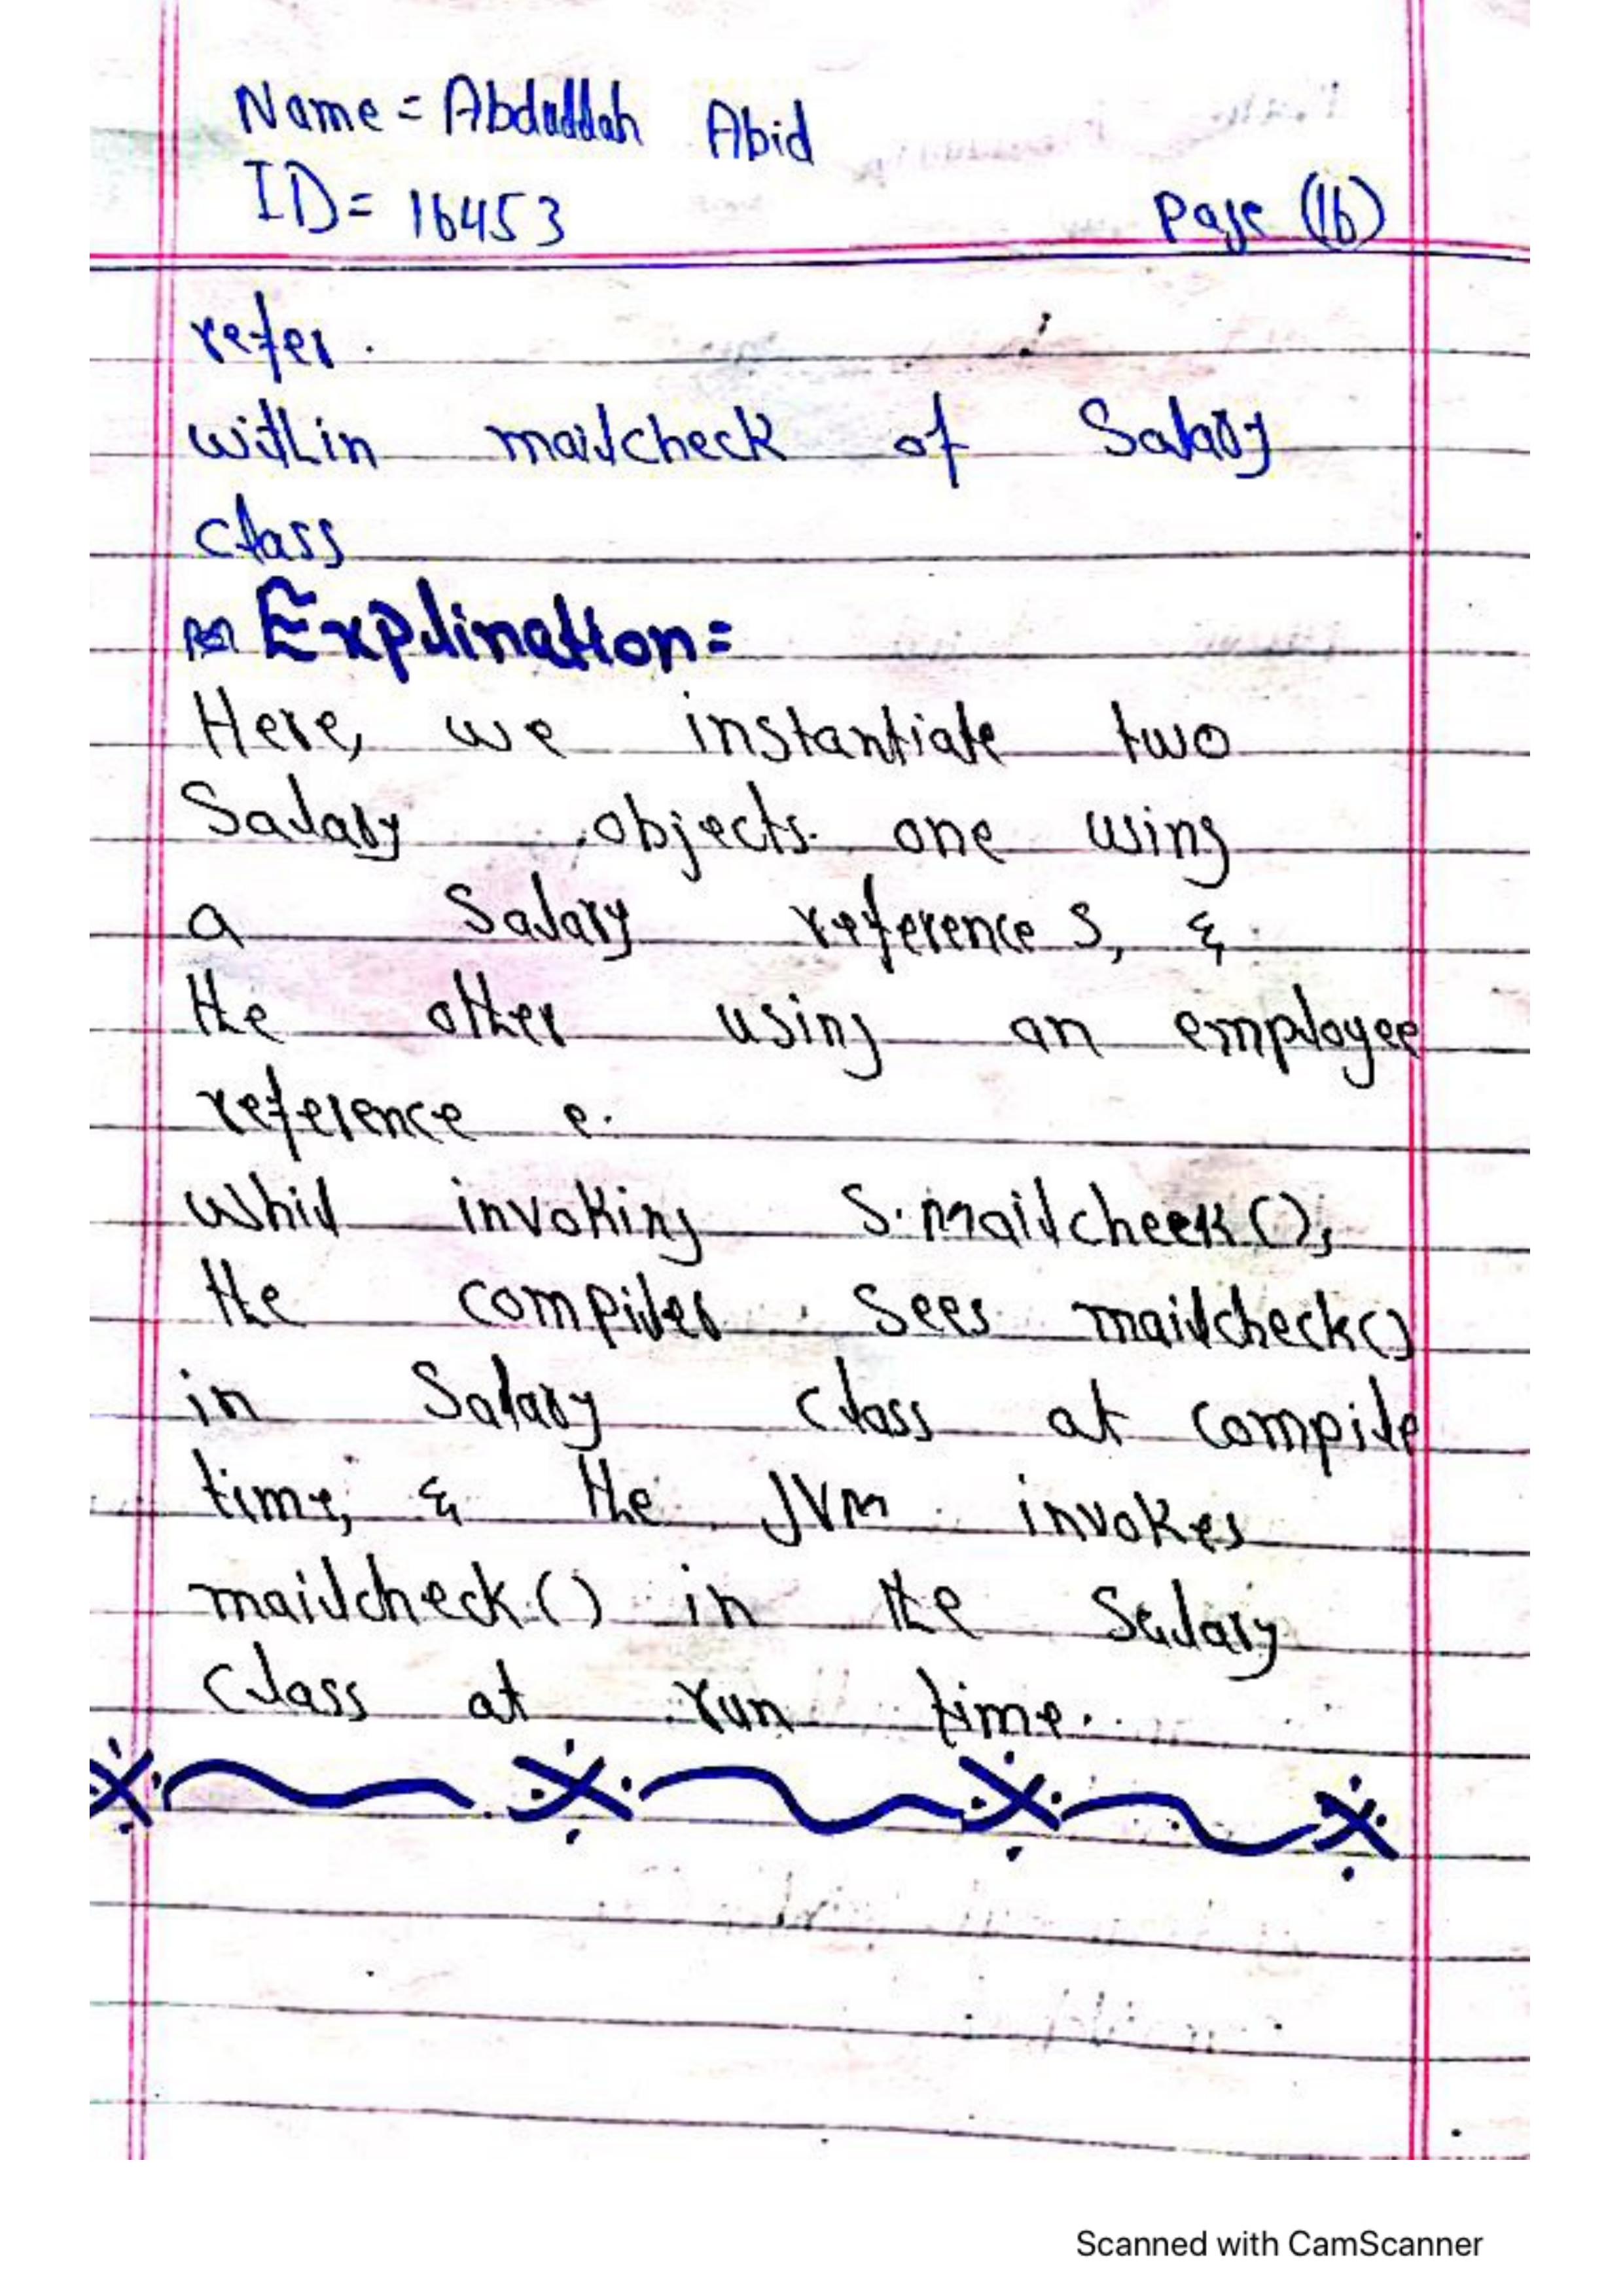 Name = Abdullah Abid
ID= 16453
Page (16)
refer.
within mailcheck of Salary
class
Explination=
Here, we instantiate two
Salary objects. one using
a Salary reference S, &
the other using an employee
reference e.
whil invoking S.mailcheek();
the compiler sees mailcheck()
in Salary class at compile
time, & the JVM invokes
mailcheck() in the Salary
class at run time.
Scanned with CamScanner